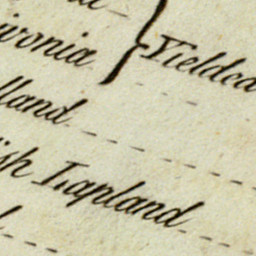 ivonia } Yieldca
lland
ish Lapland